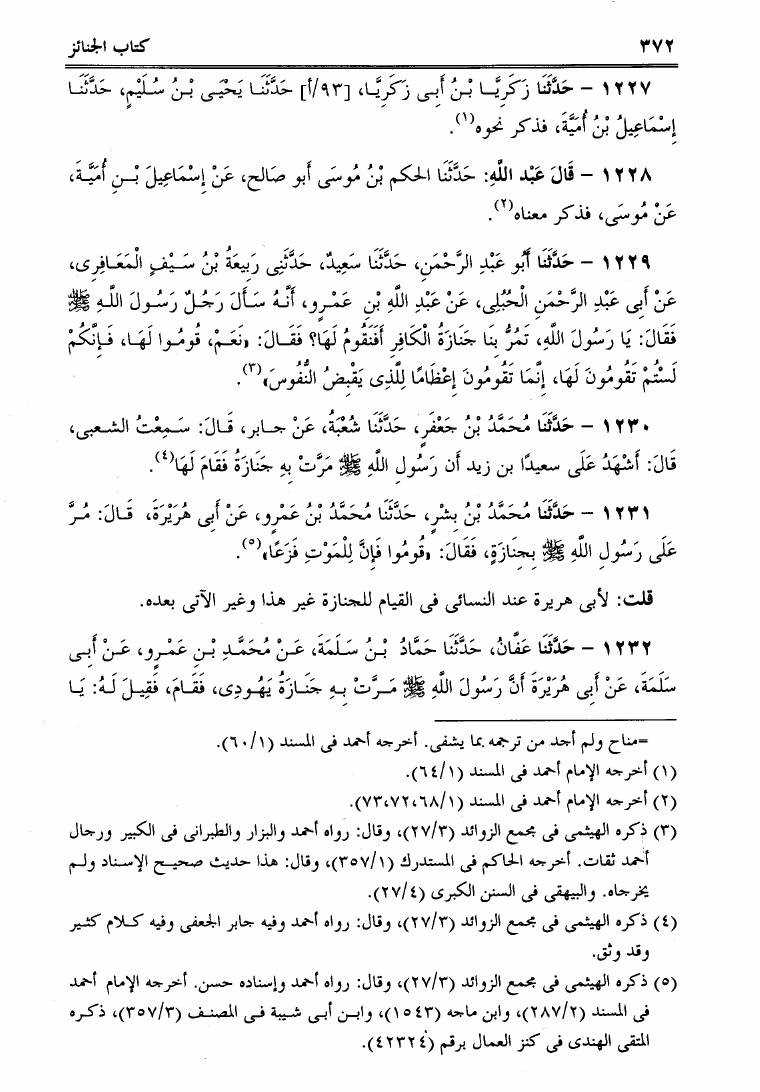 ٣٧٢ كتاب الجنائز
١٢٢٧ – حَدَّثَنَا زَكَرِيَّا بْنُ أَبِى زَكَرِيَّا، [٩٣/أ] حَدَّثَنَا يَحْيَى بْنُ سُلَيْمٍ، حَدَّثَنَا
إِسْمَاعِيلُ بْنُ أُمَيَّةَ، فذكر نحوه(١).
١٢٢٨ – قَالَ عَبْد اللَّهِ: حَدَّثَنَا الحكم بْنُ مُوسَى أبو صالح، عَنْ إِسْمَاعِيلَ بْنِ أُمَيَّةَ،
عَنْ مُوسَى، فذكر معناه(٢).
١٢٢٩ – حَدَّثَنَا أَبُو عَبْدِ الرَّحْمَنِ، حَدَّثَنَا سَعِيدٌ، حَدَّثَنِى رَبِيعَةُ بْنُ سَيْفٍ الْمَعَافِرِى،
عَنْ أَبِى عَبْدِ الرَّحْمَنِ الْحُبُلِى، عَنْ عَبْدِ اللَّهِ بْنِ عَمْرٍو، أَنَّهُ سَأَلَ رَجُلٌ رَسُولَ اللَّهِ ﷺ
فَقَالَ: يَا رَسُولَ اللَّهِ، تَمُرُّ بِنَا جَنَازَةُ الْكَافِرِ أَفَنَقُومُ لَهَا؟ فَقَالَ: «نَعَمْ، قُومُوا لَهَا، فَإِنَّكُمْ
لَسْتُمْ تَقُومُونَ لَهَا، إِنَّمَا تَقُومُونَ إِعْظَامًا لِلَّذِى يَقْبِضُ النُّفُوسَ»(٣).
١٢٣٠ – حَدَّثَنَا مُحَمَّدُ بْنُ جَعْفَرٍ، حَدَّثَنَا شُعْبَةُ، عَنْ جابر، قَالَ: سَمِعْتُ الشعبى،
قَالَ: أَشْهَدُ عَلَى سعيدًا بن زيد أن رَسُولِ اللَّهِ ﷺ مَرَّتْ بِهِ جَنَازَةُ فَقَامَ لَهَا(٤).
١٢٣١ – حَدَّثَنَا مُحَمَّدُ بْنُ بِشْرٍ، حَدَّثَنَا مُحَمَّدُ بْنُ عَمْرٍو، عَنْ أَبِى هُرَيْرَةَ، قَالَ: مُرَّ
عَلَى رَسُولِ اللَّهِ ﷺ بِجنَازَةٍ، فَقَالَ: «قُومُوا فَإِنَّ لِلْمَوْتِ فَزَعًا»(٥).
قلت: لأبى هريرة عند النسائى فى القيام للجنازة غير هذا وغير الآتى بعده.
١٢٣٢ – حَدَّثَنَا عَفَّانُ، حَدَّثَنَا حَمَّادُ بْنُ سَلَمَةَ، عَنْ مُحَمَّدِ بْنِ عَمْرٍو، عَنْ أَبِى
سَلَمَةَ، عَنْ أَبِى هُرَيْرَةَ أَنَّ رَسُولَ اللَّهِ ﷺ مَرَّتْ بِهِ جَنَازَةُ يَهُودِى، فَقَامَ، فَقِيلَ لَهُ: يَا
=مناح ولم أجد من ترجمه بما يشفى. أخرجه أحمد فى المسند (٦٠/١).
(١) أخرجه الإمام أحمد فى المسند (٦٤/١).
(٢) أخرجه الإمام أحمد فى المسند (٧٣،٧٢،٦٨/١).
(٣) ذكره الهيثمى فى مجمع الزوائد (٢٧/٣)، وقال: رواه أحمد والبزار والطبرانى فى الكبير ورجال
أحمد ثقات. أخرجه الحاكم فى المستدرك (٣٥٧/١)، وقال: هذا حديث صحيح الإسناد ولم
يخرجاه. والبيهقى فى السنن الكبرى (٢٧/٤).
(٤) ذكره الهيثمى فى مجمع الزوائد (٢٧/٣)، وقال: رواه أحمد وفيه جابر الجعفى وفيه كلام كثير
وقد وثق.
(٥) ذكره الهيثمى فى مجمع الزوائد (٢٧/٣)، وقال: رواه أحمد وإسناده حسن. أخرجه الإمام أحمد
فى المسند (٢٨٧/٢)، وابن ماجه (١٥٤٣)، وابن أبى شيبة فى المصنف (٣٥٧/٣)، ذكره
المتقى الهندى فى كنز العمال برقم (٤٢٣٢٤).